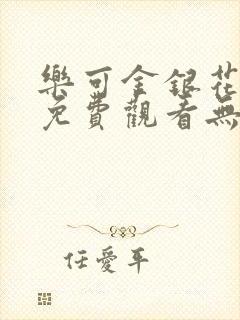 樂可金銀花
免費觀看無
任愛平